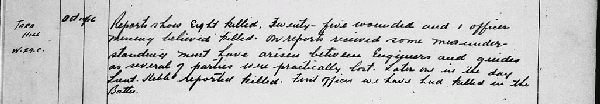 Tara Hill
W.27.c.
Oct 1916
Reports show Eight killed, Twenty-five wounded and 1 officer
missing believed killed. On reports received some misunder-
standing must have arisen between Engineers and guides
as several of parties were practically lost. Later on in the day
Lieut. reported killed. First Officer we have had killed in the
Battn.